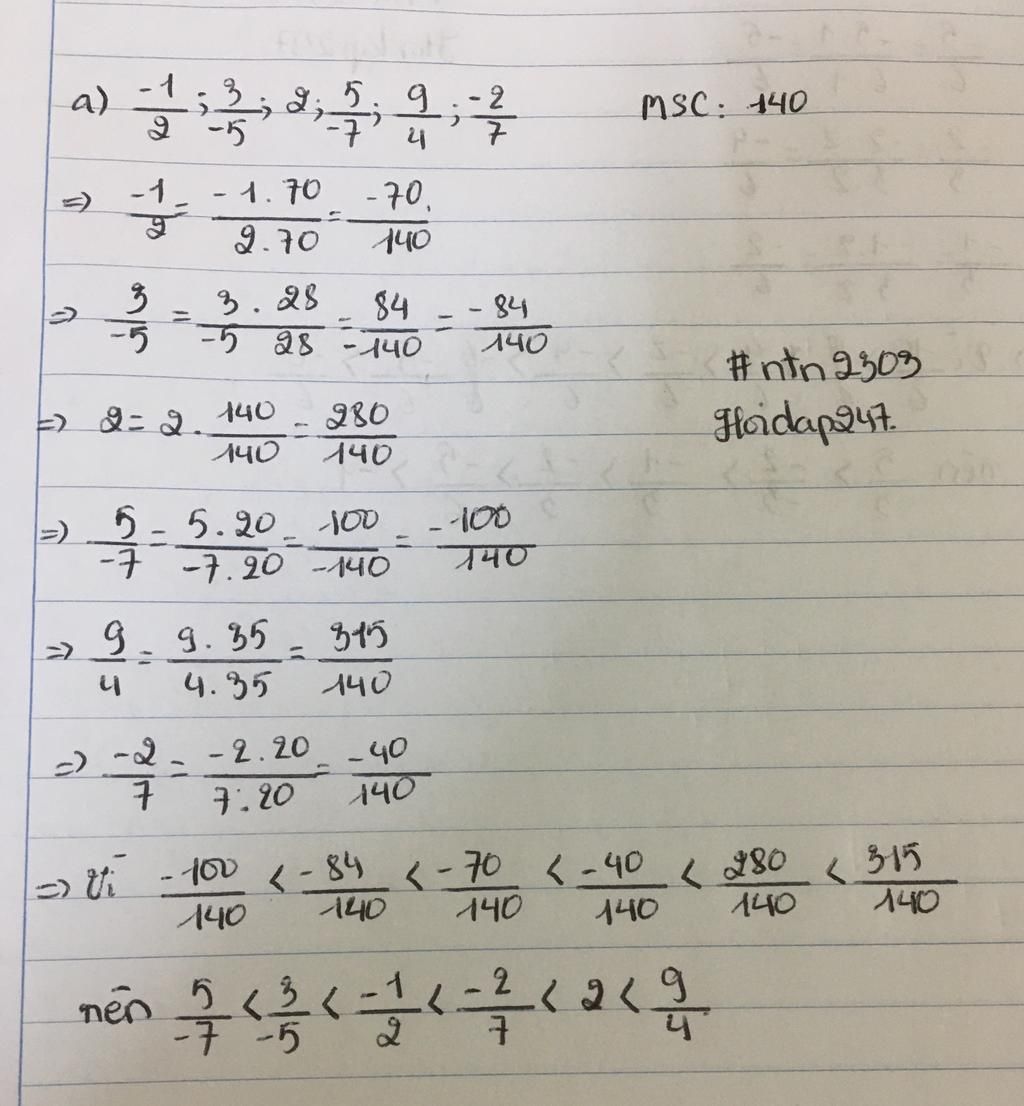 a) -1/2 ; 3/-5 ; 2 ; 5/-7 ; 9/4 ; -2/7 MSC: 140
=> -1/2 = -1.70/2.70 = -70/140
=> 3/-5 = 3.28/-5 28 = 84/-140 = -84/140
#ntn2303
=> 2 = 2.140/140 = 280/140
Hoidap247.
=> 5/-7 = 5.20/-7.20 = 100/-140 = -100/140
=> 9/4 = 9.35/4.35 = 315/140
=> -2/7 = -2.20/7.20 = -40/140
=> Vì -100/140 < -84/140 < -70/140 < -40/140 < 280/140 < 315/140
nên 5/-7 < 3/-5 < -1/2 < -2/7 < 2 < 9/4